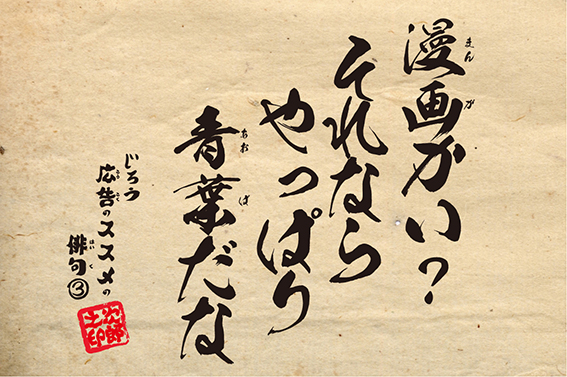 漫画かい？
それなら
やっぱり
青葉だな
じろう
広告のススメの
俳句③
次郎
之印